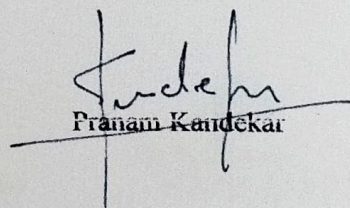 Pranam Kandekar